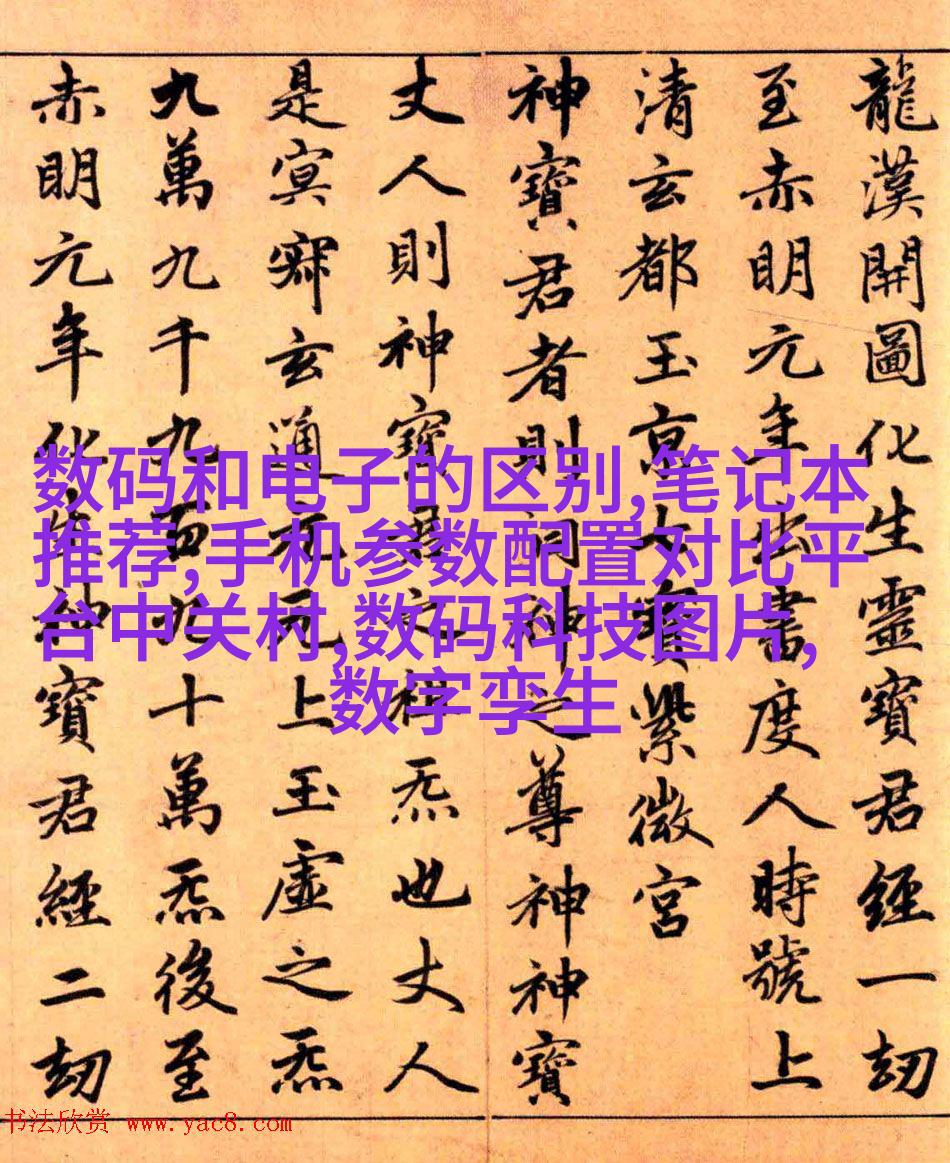 龍漢開圖化生靈寶君經一劫
至赤明元年出書度人時號上
清玄都玉京七寶紫微宮
神寶君者則洞神之尊神神寶
丈人則神寶君之祖炁也丈人
是冥寂玄通无元上玉虛之炁
九萬九千九百九十萬炁後至
赤明元年化生神寶君經二劫
数码和电子的区别,笔记本
推荐,手机参数配置对比平
台中关村,数码科技图片,
数字孪生
书法欣赏 www.yac8.com